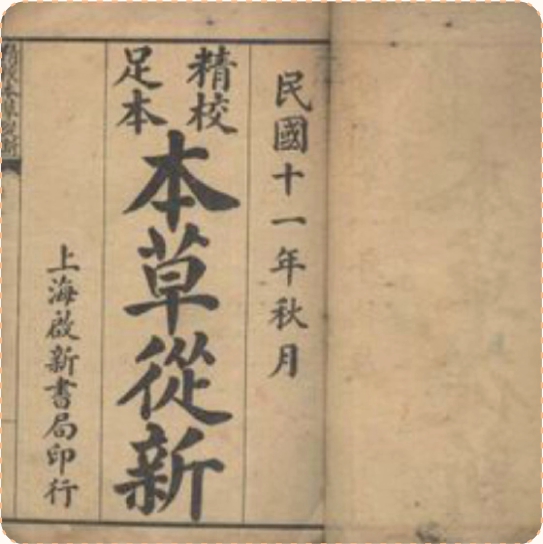 民國十一年秋月
精校
足本
本草從新
上海啟新書局印行